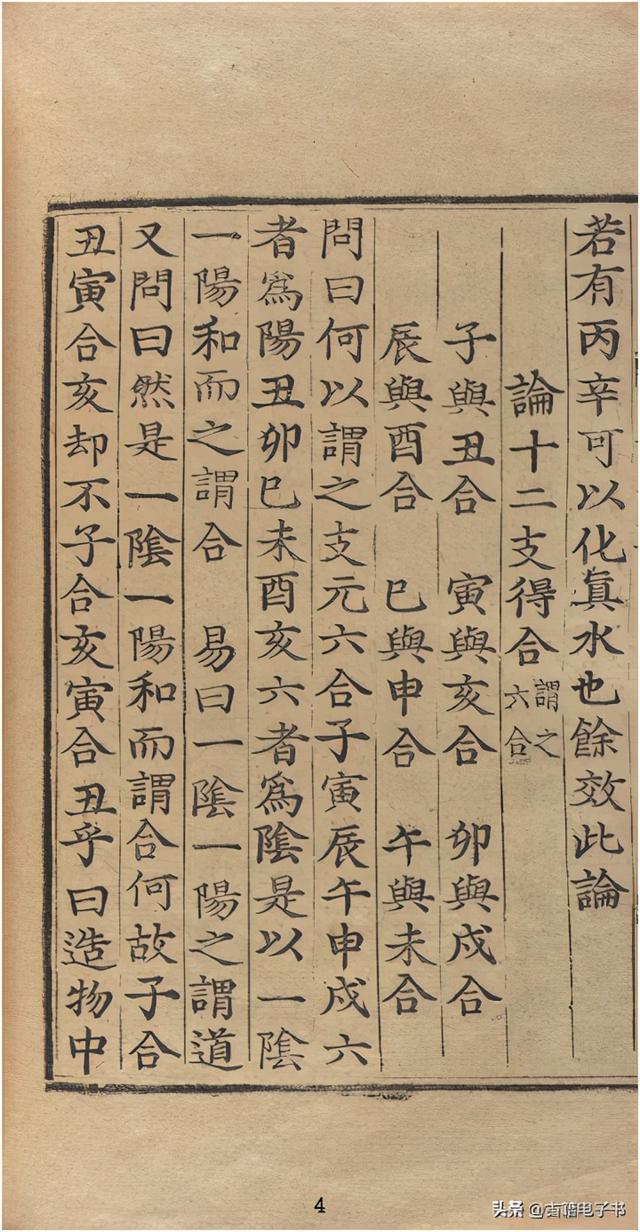 若有丙辛可以化眞水也餘效此論
論十二支得合謂之六合
子與丑合 寅與亥合 卯與戍合
辰與酉合 巳與申合 午與未合
問曰何以謂之支元六合子寅辰午申戍六
者爲陽丑卯巳未酉亥六者爲陰是以一陰
一陽和而之謂合 易曰一陰一陽之謂道
又問曰然是一陰一陽和而謂合何故子合
丑寅合亥却不子合亥寅合丑乎曰造物中
4
头条 @古籍电子书